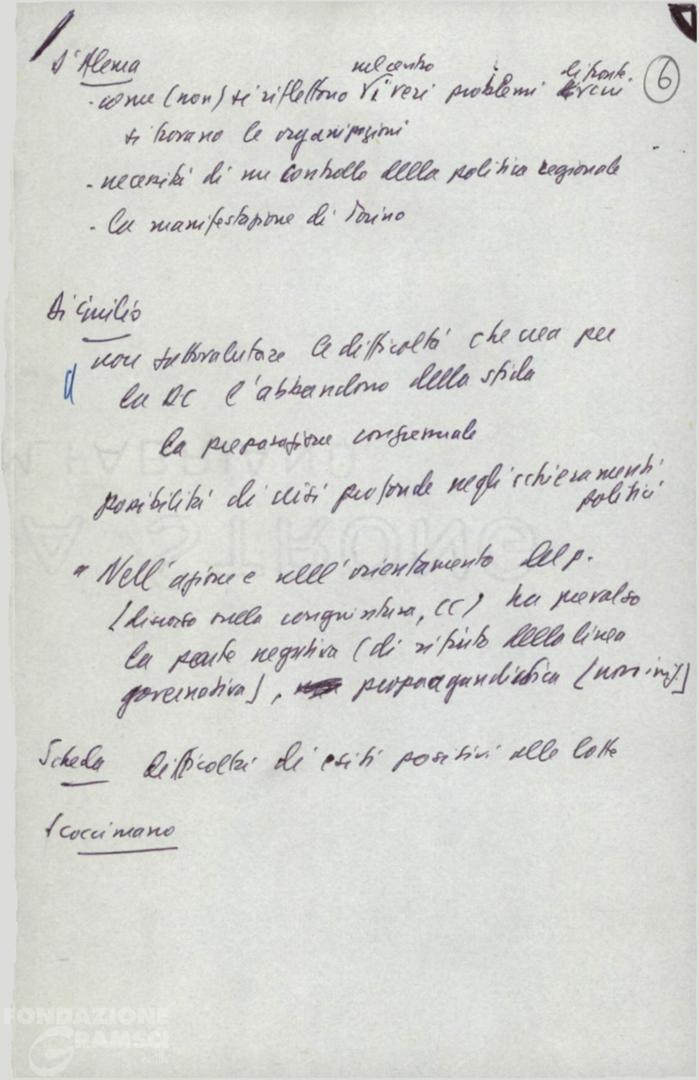 6
D'Alema
nel centro di fronte
- come (non) si riflettono i veri problemi cui
si trovano le organizzazioni
- necessità di un controllo della politica regionale
- la manifestazione di Torino
Di Giulio
non sottovalutare le difficoltà che crea per
la DC l'abbandono della sfida
la preparazione congressuale
possibilità di crisi profonde negli schieramenti
politici
Nell'azione e nell'orientamento del p.
(discorso sulla congiuntura, CC) ha prevalso
la parte negativa (di rifiuto della linea
governativa), propagandistica
Scheda difficoltà di esiti positivi alle lotte
Scoccimarro
FONDAZIONE
GRAMSCI